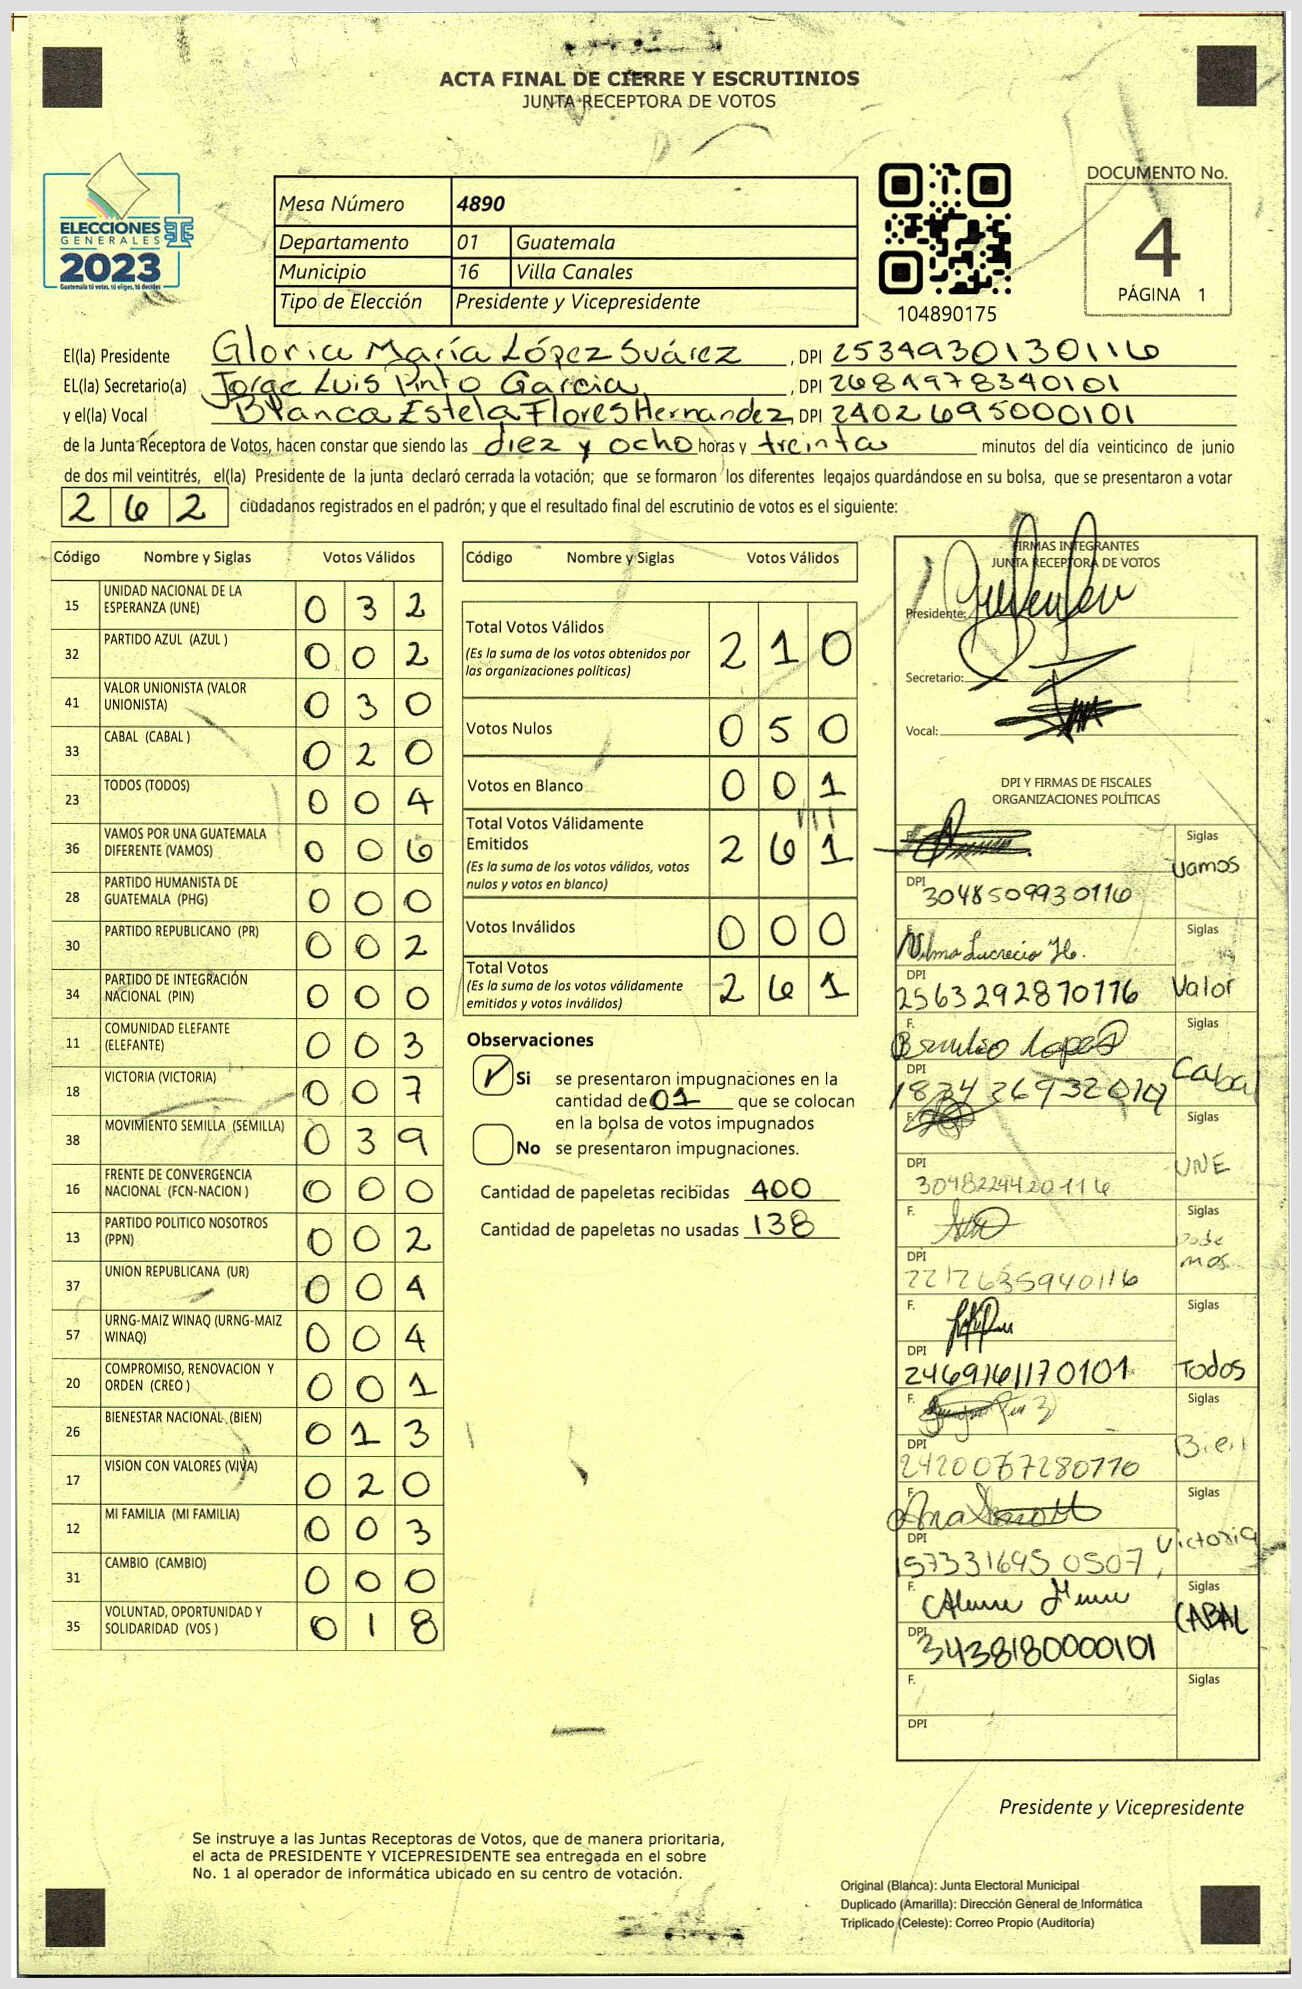 ACTA FINAL DE CIERRE Y ESCRUTINIOS
JUNTA RECEPTORA DE VOTOS
ELECCIONES
GENERALES
2023
Guatemala tú votas, tú eliges, tú decides
Mesa Número 4890
Departamento 01 Guatemala
Municipio 16 Villa Canales
Tipo de Elección Presidente y Vicepresidente
104890175
DOCUMENTO No.
4
PÁGINA 1
El(la) Presidente Gloria María López Suárez, DPI 2534930130116
EL(la) Secretario(a) Jorge Luis Pinto Garcia, DPI 2681978340101
y el(la) Vocal Blanca Estela Flores Hernandez, DPI 2402695000101
de la Junta Receptora de Votos, hacen constar que siendo las diez y ocho horas y treinta minutos del día veinticinco de junio
de dos mil veintitrés, el(la) Presidente de la junta declaró cerrada la votación; que se formaron los diferentes legajos guardándose en su bolsa, que se presentaron a votar
262 ciudadanos registrados en el padrón; y que el resultado final del escrutinio de votos es el siguiente:
Código Nombre y Siglas Votos Válidos
15 UNIDAD NACIONAL DE LA ESPERANZA (UNE) 032
32 PARTIDO AZUL (AZUL ) 002
41 VALOR UNIONISTA (VALOR UNIONISTA) 030
33 CABAL (CABAL ) 020
23 TODOS (TODOS) 004
36 VAMOS POR UNA GUATEMALA DIFERENTE (VAMOS) 006
28 PARTIDO HUMANISTA DE GUATEMALA (PHG) 000
30 PARTIDO REPUBLICANO (PR) 002
34 PARTIDO DE INTEGRACIÓN NACIONAL (PIN) 000
11 COMUNIDAD ELEFANTE (ELEFANTE) 003
18 VICTORIA (VICTORIA) 007
38 MOVIMIENTO SEMILLA (SEMILLA) 039
16 FRENTE DE CONVERGENCIA NACIONAL (FCN-NACION ) 000
13 PARTIDO POLITICO NOSOTROS (PPN) 002
37 UNION REPUBLICANA (UR) 004
57 URNG-MAIZ WINAQ (URNG-MAIZ WINAQ) 004
20 COMPROMISO, RENOVACION Y ORDEN (CREO ) 001
26 BIENESTAR NACIONAL (BIEN) 013
17 VISION CON VALORES (VIVA) 020
12 MI FAMILIA (MI FAMILIA) 003
31 CAMBIO (CAMBIO) 000
35 VOLUNTAD, OPORTUNIDAD Y SOLIDARIDAD (VOS ) 018
Código Nombre y Siglas Votos Válidos
Total Votos Válidos 210
(Es la suma de los votos obtenidos por
las organizaciones políticas)
Votos Nulos 050
Votos en Blanco 001
Total Votos Válidamente
Emitidos 261
(Es la suma de los votos válidos, votos
nulos y votos en blanco)
Votos Inválidos 000
Total Votos 261
(Es la suma de los votos válidamente
emitidos y votos inválidos)
Observaciones
Si se presentaron impugnaciones en la
cantidad de 01 que se colocan
en la bolsa de votos impugnados
No se presentaron impugnaciones.
Cantidad de papeletas recibidas 400
Cantidad de papeletas no usadas 138
FIRMAS INTEGRANTES
JUNTA RECEPTORA DE VOTOS
Presidente:
Secretario:
Vocal:
DPI Y FIRMAS DE FISCALES
ORGANIZACIONES POLÍTICAS
F. Siglas
Vamos
DPI 3048509930116
F. Vilma Lucrecia H. Siglas
DPI 2563292870116 Valor
F. Siglas
DPI Cabal
F. Siglas
DPI UNE
3048224420116
F. Siglas
Podemos
DPI 2212635940116
F. Siglas
DPI
2469161170101 Todos
F. Siglas
DPI Bien
F. Ana Siglas
DPI 1573316950507, Victoria
F. Siglas
CABAL
DPI 3438180000101
F. Siglas
DPI
Presidente y Vicepresidente
Se instruye a las Juntas Receptoras de Votos, que de manera prioritaria,
el acta de PRESIDENTE Y VICEPRESIDENTE sea entregada en el sobre
No. 1 al operador de informática ubicado en su centro de votación.
Original (Blanca): Junta Electoral Municipal
Duplicado (Amarilla): Dirección General de Informática
Triplicado (Celeste): Correo Propio (Auditoría)